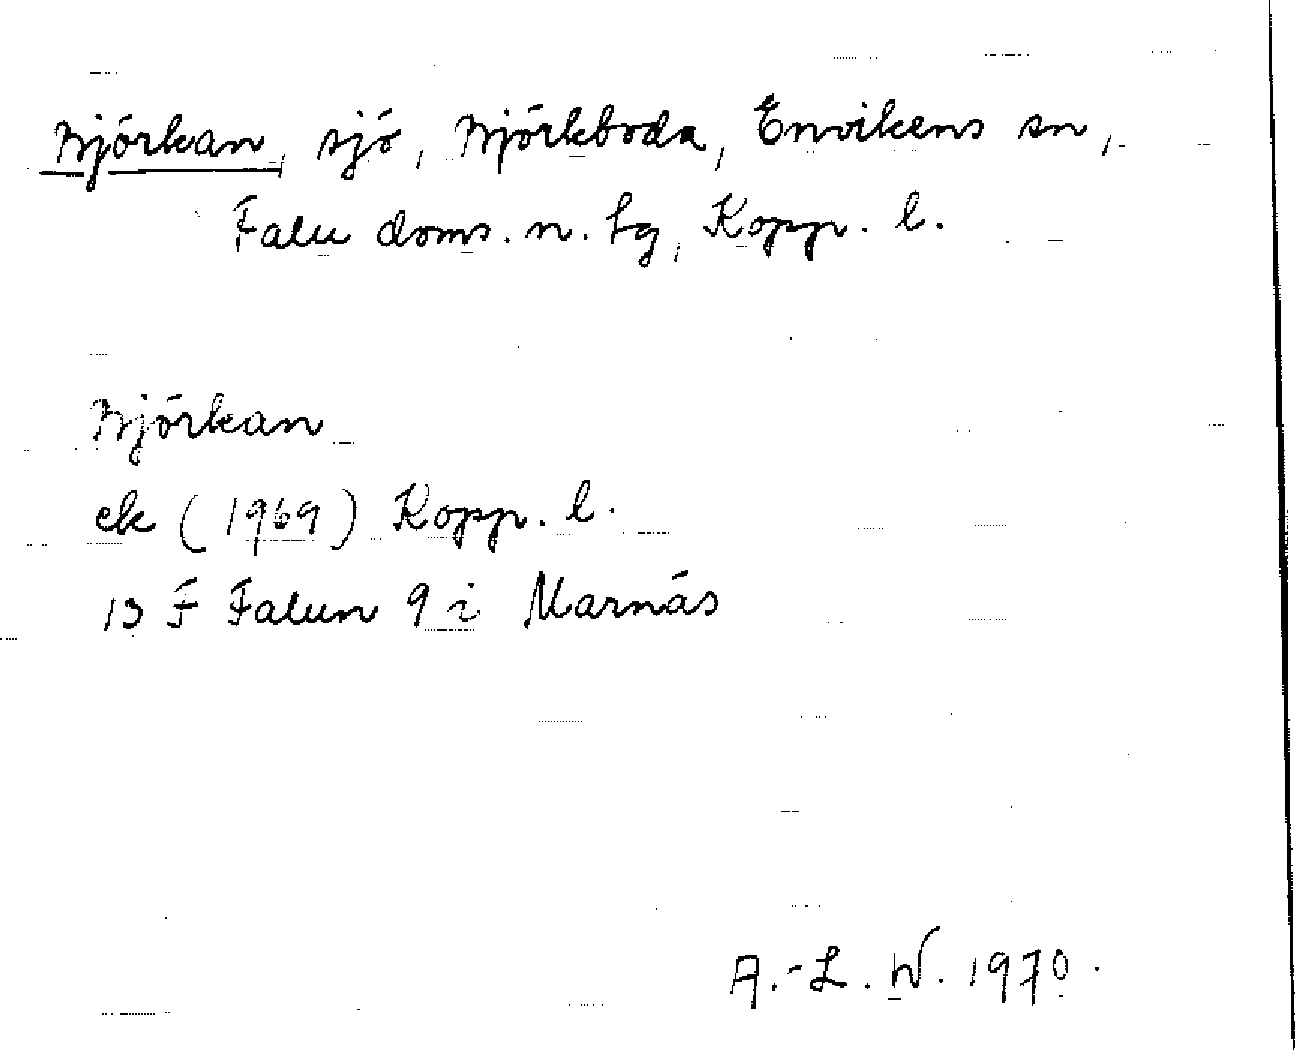 Björkan, sjö, Björkboda, Envikens sn,
Falu doms. n. tg, Kopp. l.
Björkan
ek (1969) Kopp. l.
13 F Falun 9 i Marnäs
A.-L. W. 1970.